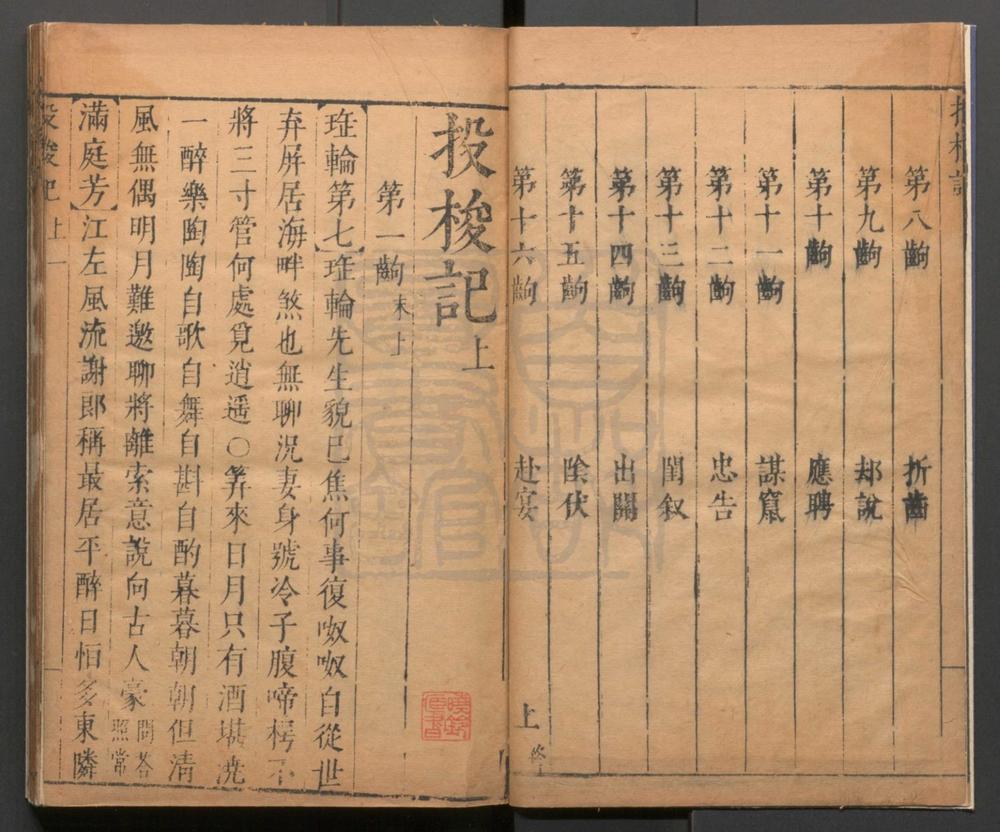 第八齣 折齒
第九齣 却說
第十齣 應聘
第十一齣 謀竄
第十二齣 忠告
第十三齣 閨叙
第十四齣 出關
第十五齣 陰伏
第十六齣 赴宴
上
投梭記上
第一齣 末上
【瑳輪第七】瑳輪先生貌已焦何事復呶呶自從世
弃屏居海畔煞也無聊況妻身號冷子腹啼枵不
將三寸管何處覓逍遥○筭來日月只有酒堪澆
一醉樂陶陶自歌自舞自斟自酌暮暮朝朝但清
風無偶明月難邀聊將離索意說向古人豪問荅照常
【滿庭芳】江左風流謝郎稱最居平醉日怕多東隣
投梭記 上 一